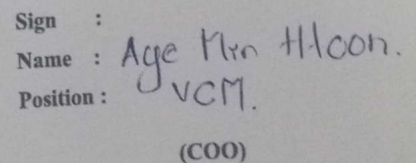 Sign :
Name : Aye Min Htoon.
Position : VCM.
(COO)